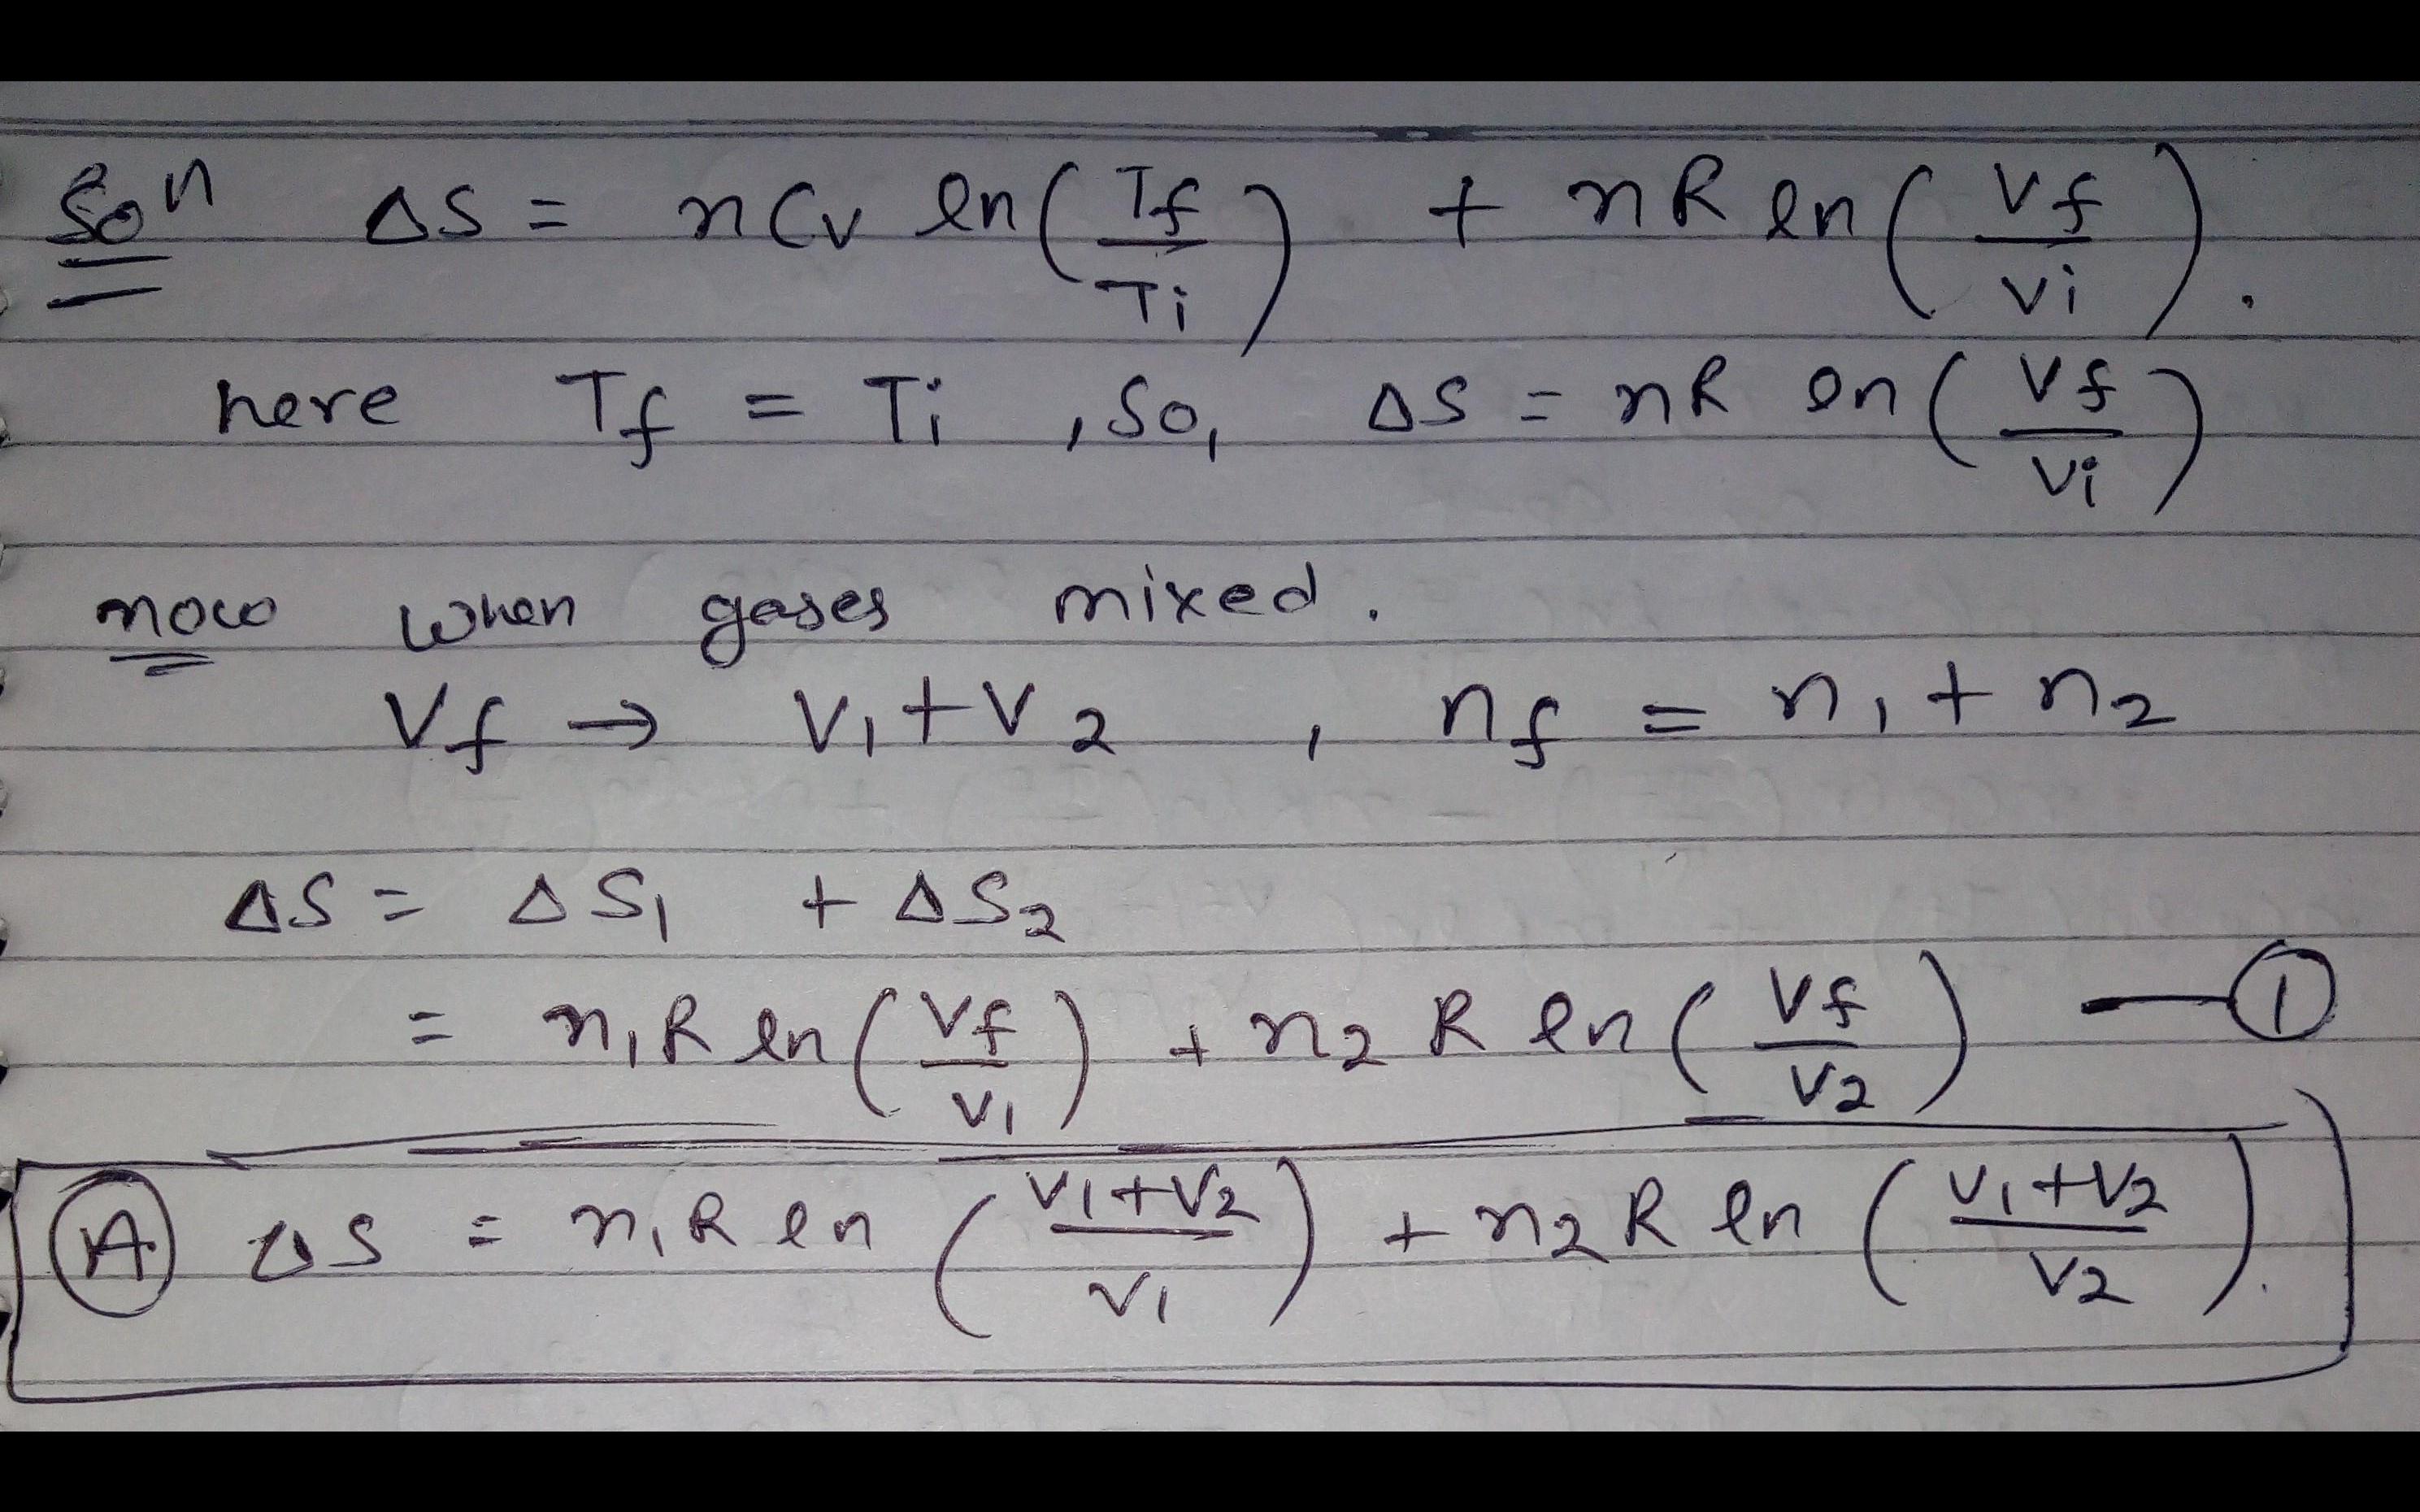 Soⁿ ΔS = nCv ln(Tf/Ti) + nR ln(Vf/Vi).
here Tf = Ti, So, ΔS = nR ln(Vf/Vi)
now when gases mixed.
Vf → V₁+V₂ , nf = n₁+n₂
ΔS = ΔS₁ + ΔS₂
= n₁R ln(Vf/V₁) + n₂R ln(Vf/V₂) —①
Ⓐ ΔS = n₁R ln(V₁+V₂/V₁) + n₂R ln(V₁+V₂/V₂).